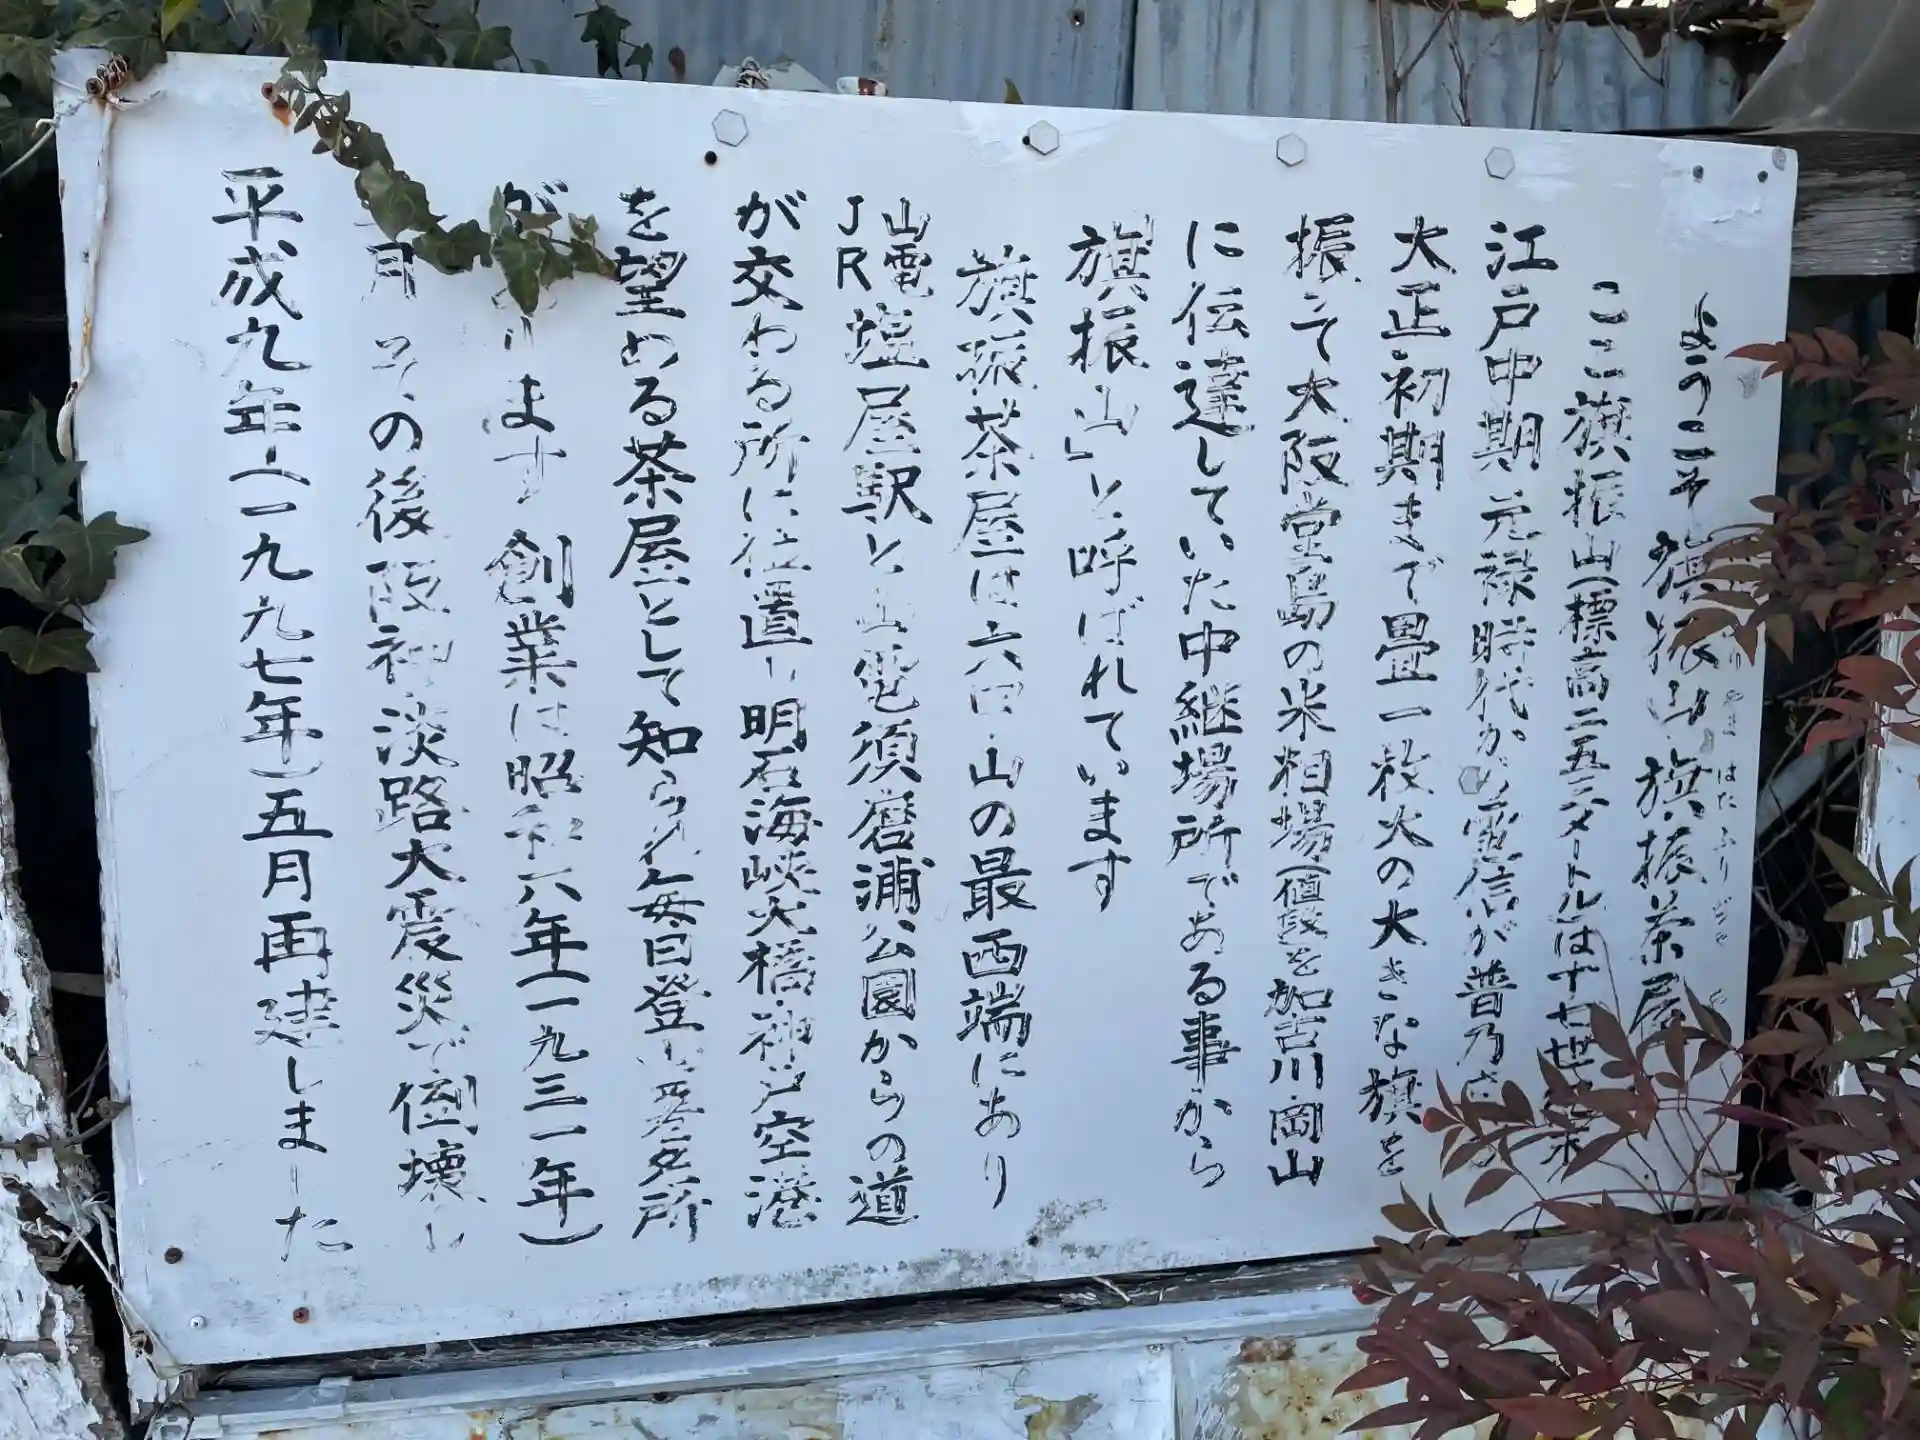 ようこそ 旗振山 旗振茶屋
はたふりぢゃや
ここ旗振山(標高二五三メートル)は十七世紀末
江戸中期 元禄時代から電信が普及
大正初期まで畳一枚大の大きな旗を
振って大阪堂島の米相場(値段)を加古川 岡山
に伝達していた中継場所である事から
旗振山」と呼ばれています
旗振茶屋は六甲山の最西端にあり
JR塩屋駅と山電須磨浦公園からの道
山電
が交わる所に位置し 明石海峡大橋 神戸空港
を望める茶屋として知られ毎日登山署名所
があります 創業は昭和六年(一九三一年)
月 その後阪神淡路大震災で倒壊し
平成九年(一九九七年)五月再建しました